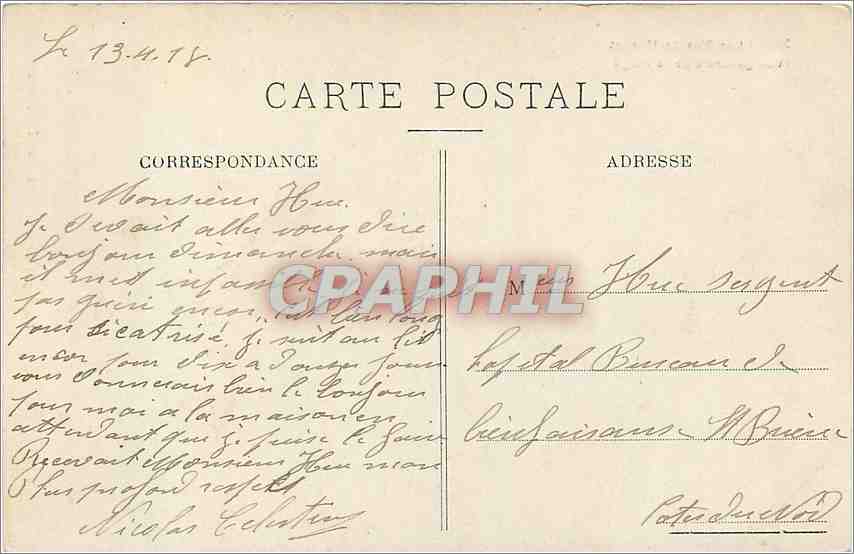 Le 13.4.18.
CARTE POSTALE
CORRESPONDANCE
Monsieur Hue.
Je devait aller vous dire
bonjour dimanche mais
il met
pas guéri encor, bien long
pour sicatrisé, je suit au lit
encor pour dix a douze jours
vous donnerais bien le bonjour
pour moi a la maison en
attendant que je puise le faire
Recevait Monsieur Hue mon
plus profond respect
Nicolas Celestin
CPAPHIL
ADRESSE
M Hue sergent
hopital Bureau de
bienfaisanse St Brieuc
Cotes du Nord